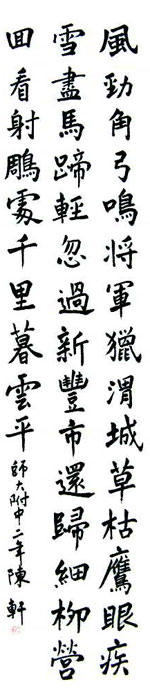 風勁角弓鳴將軍獵渭城草枯鷹眼疾
雪盡馬蹄輕忽過新豐市還歸細柳營
回看射鵰處千里暮雲平 師大附中二年陳軒